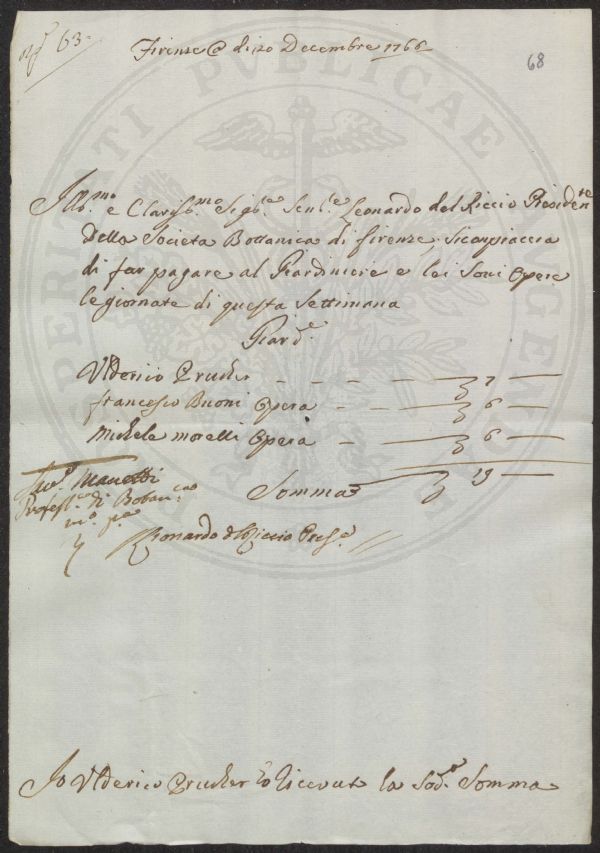 N.º 63
68
Firenze @ di 20 Decembre 1766
Ill.mo e Clariss.mo Sig.re Sen.re Leonardo del Riccio Presidente
Della Societa Bottanica di firenze, Sicompiaccia
di far pagare al Giardiniere e lei Soui Opere
le giornate di questa Settimana
Giard.e
Vlderico Prucker - - - - - 7 -
francesco Buoni Opera - - - 6 -
Michele Morelli Opera - 6 -
Somma 19 -
Manetti
Profess.e di Botan.ca
Leonardo del Riccio Pres.e
Io Vlderico Prucker ho riceout la Sod.a Somma
PROSPERITATI PVBLICAE AVGENDAE